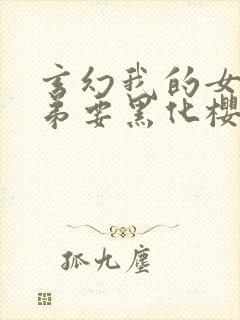 玄幻我的女
弟要黑化樱
孤九尘